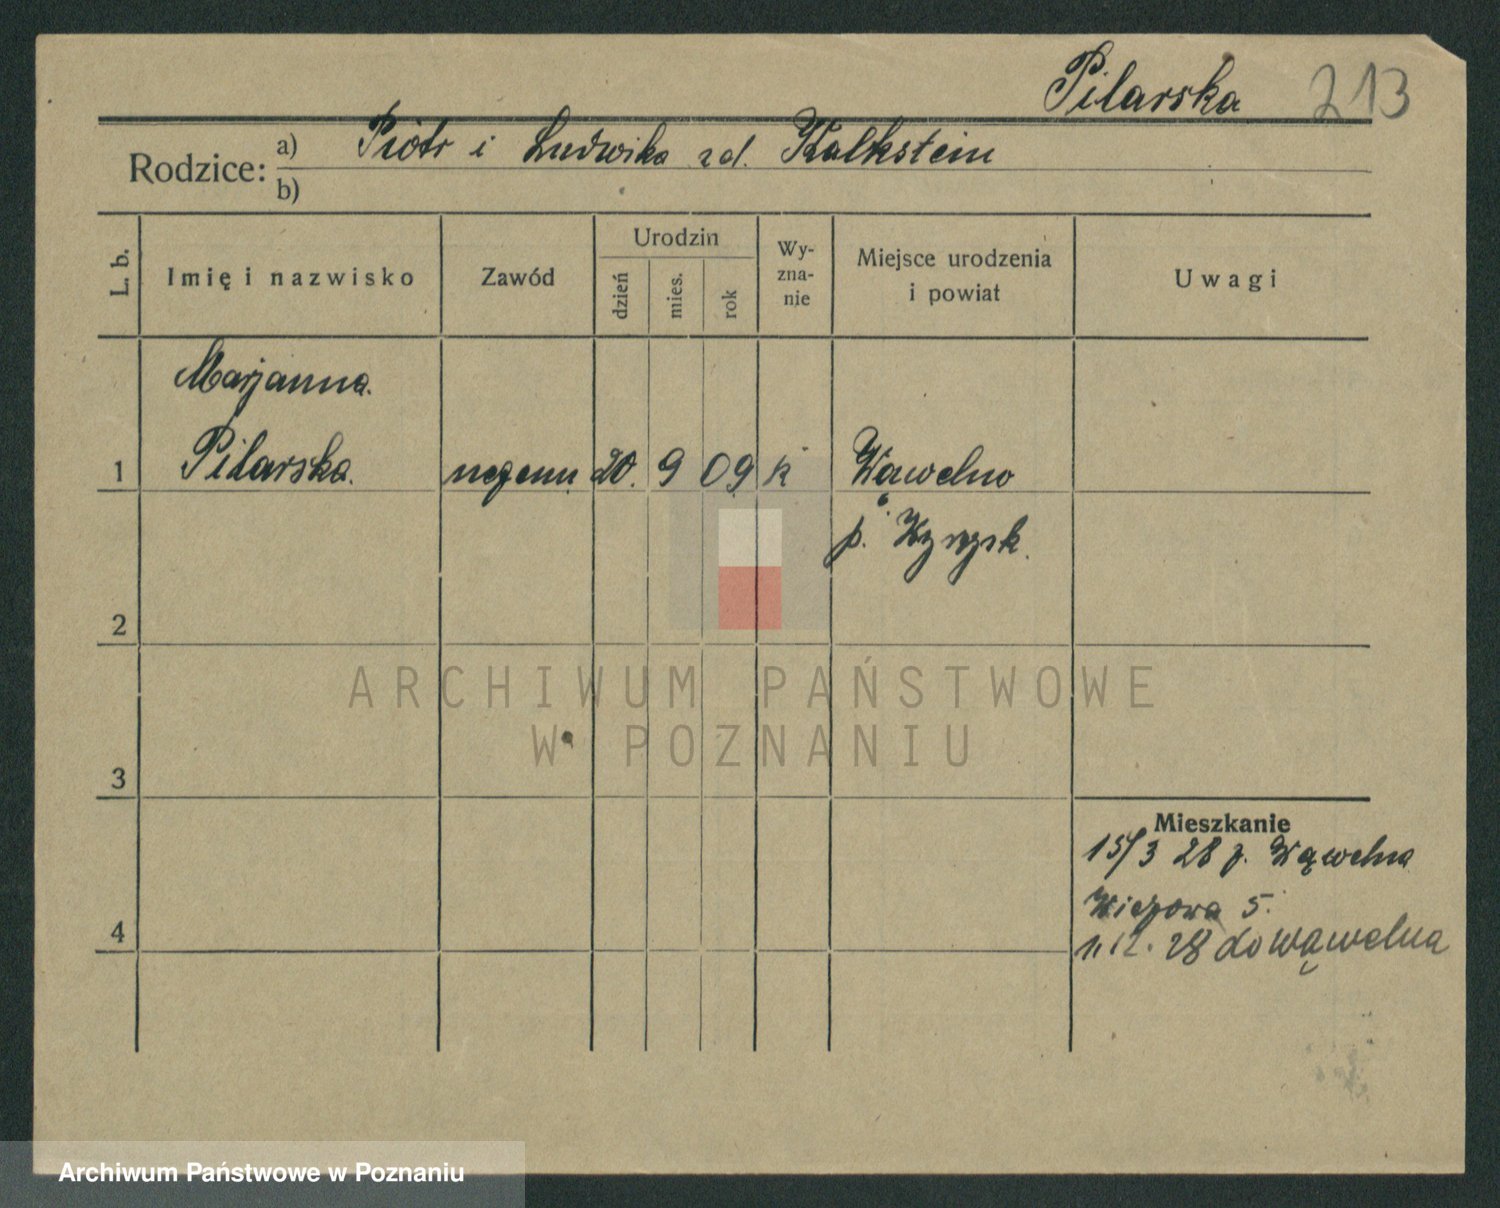 Pilarska 213
Rodzice: a) Piotr i Ludwika zd. Kalkstein
b)
L. b.
Imię i nazwisko
Zawód
Urodzin
dzień
mies.
rok
Wy-
zna-
nie
Miejsce urodzenia
i powiat
Uwagi
Marjanna
1 Pilarska. 20. 9 09 k Wąwelno
p. Wyrzysk.
2
3
Mieszkanie
15/3 28 z. Wąwelna
5.
4
1.12.28 do Wąwelna
ARCHIWUM PAŃSTWOWE
W POZNANIU
Archiwum Państwowe w Poznaniu